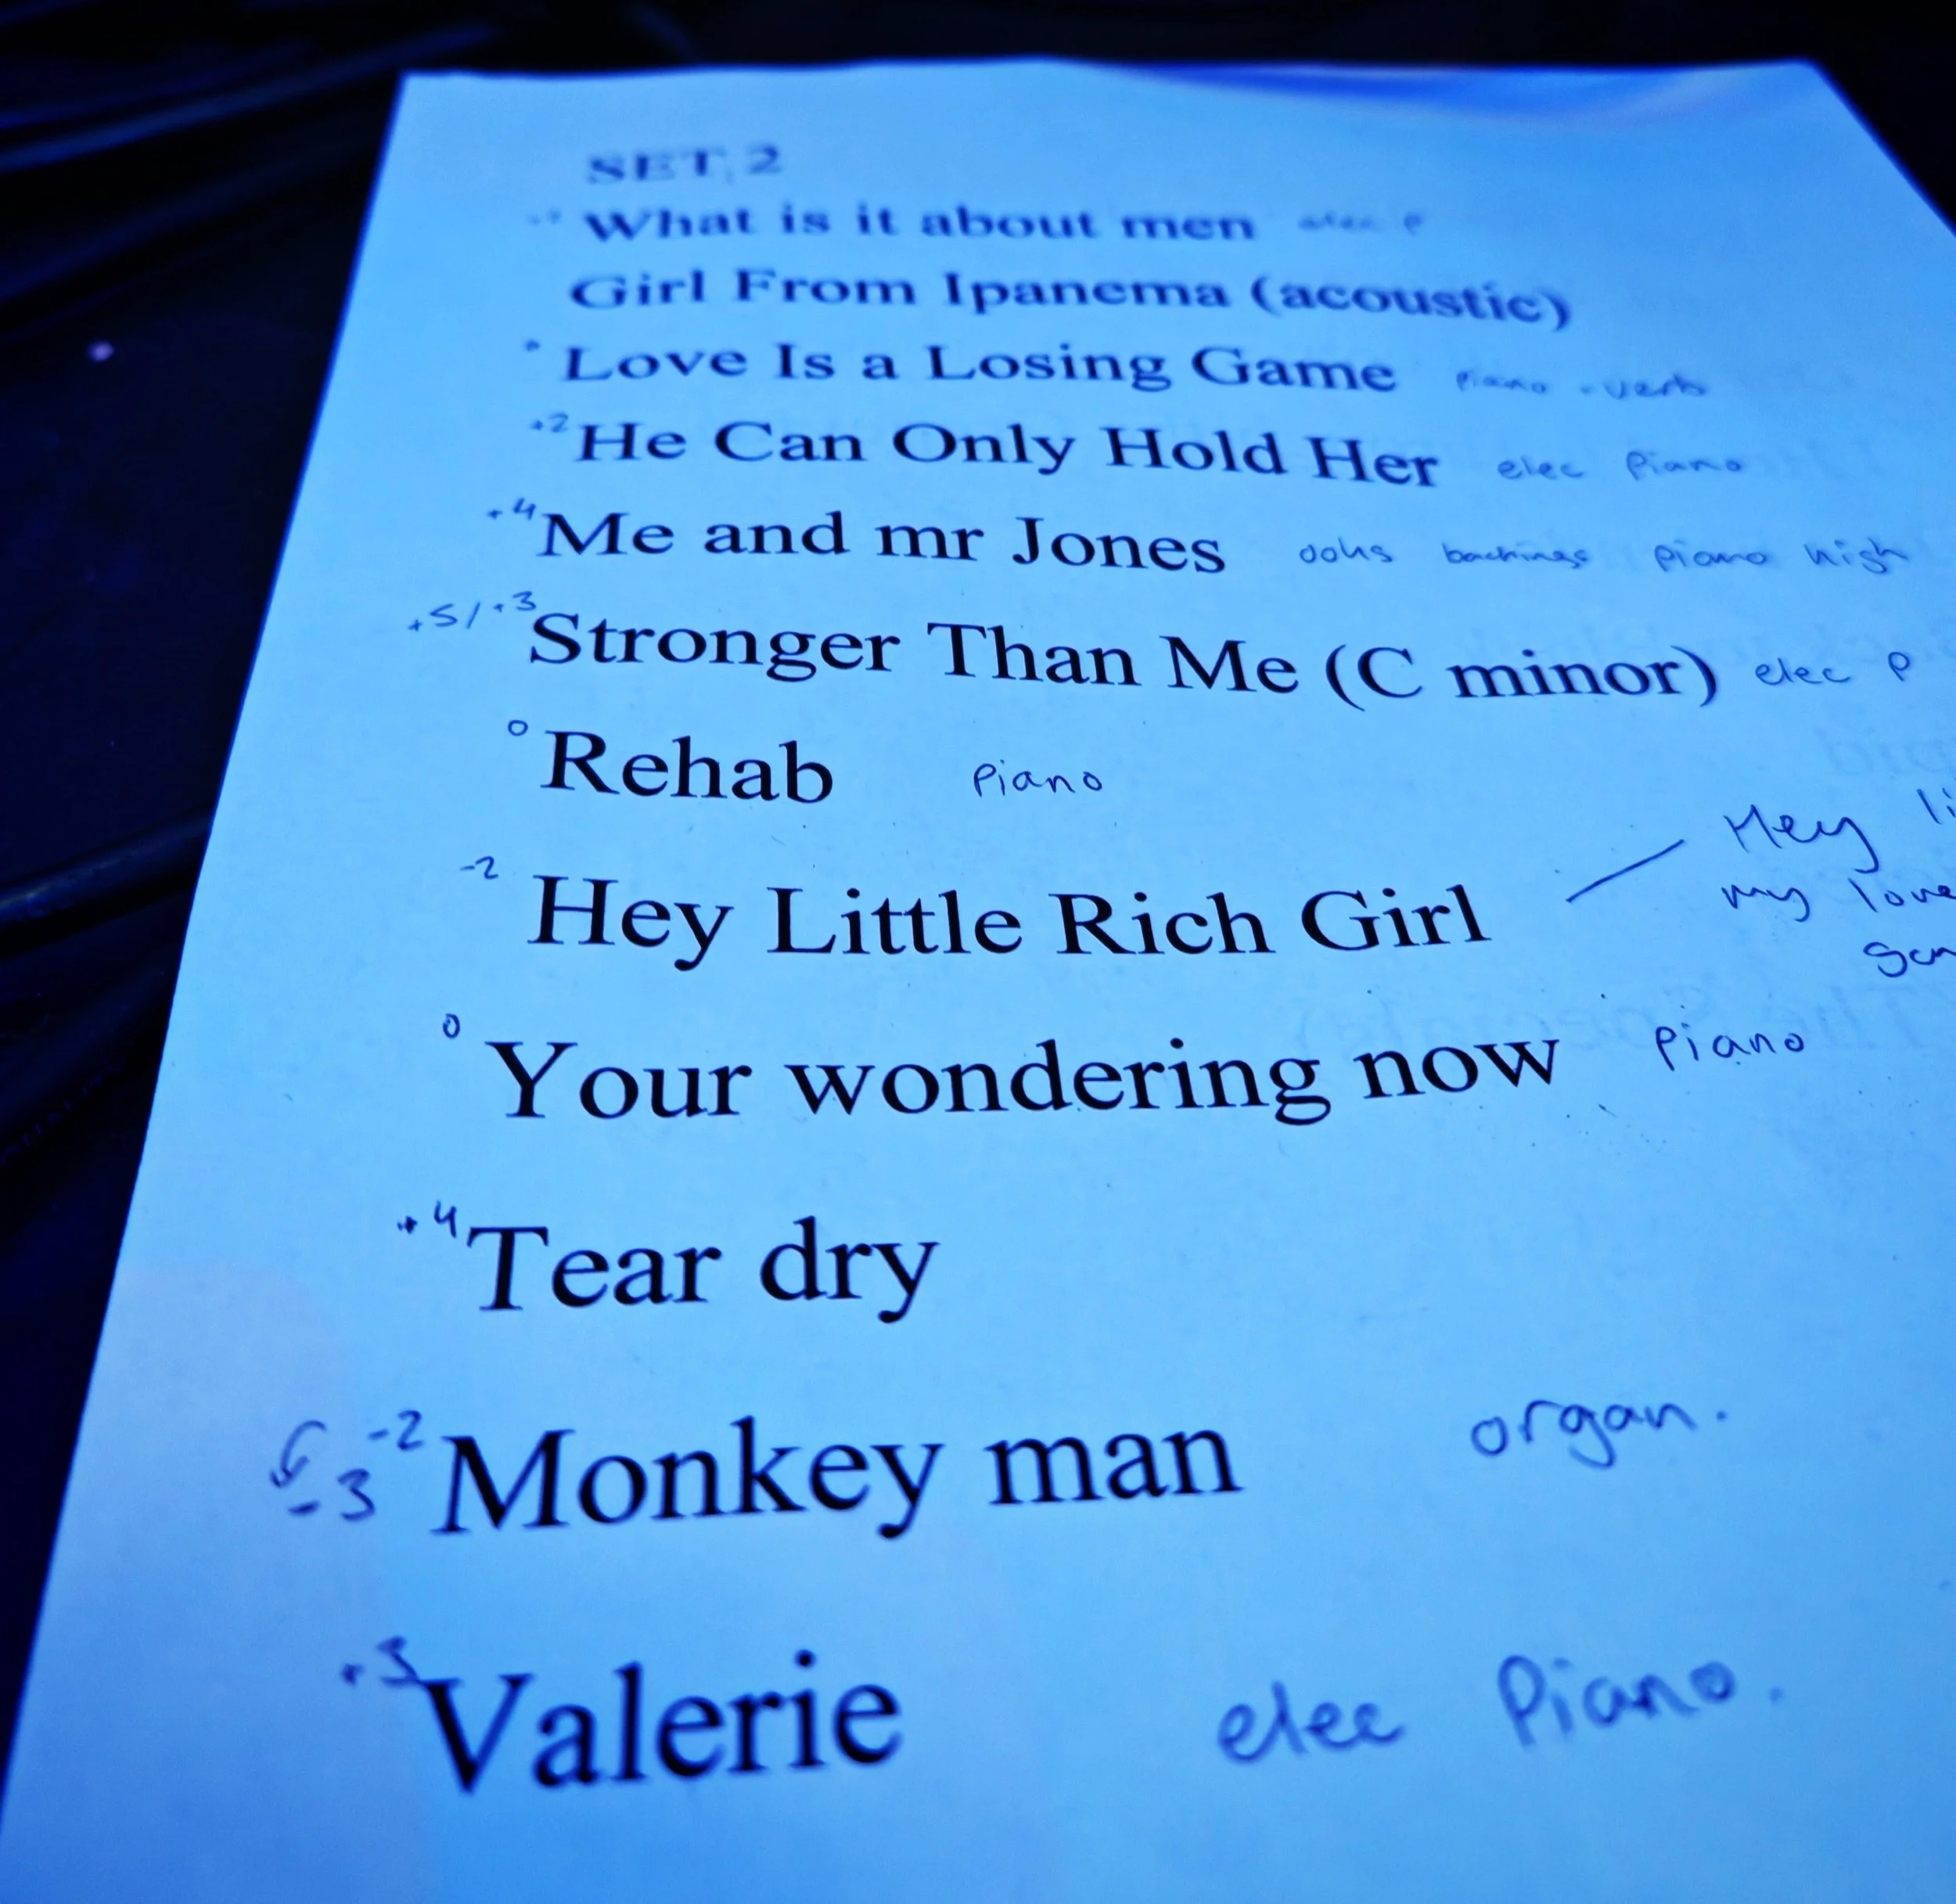 SET 2
What is it about men elec P
Girl From Ipanema (acoustic)
° Love Is a Losing Game piano + verb
+2 He Can Only Hold Her elec Piano
+4 Me and mr Jones oohs backings piano high
+5/+3 Stronger Than Me (C minor) elec P
0 Rehab Piano
-2 Hey Little Rich Girl Hey li
my love
0 Your wondering now Piano
+4 Tear dry
-2 -3 Monkey man organ.
Valerie elec Piano.